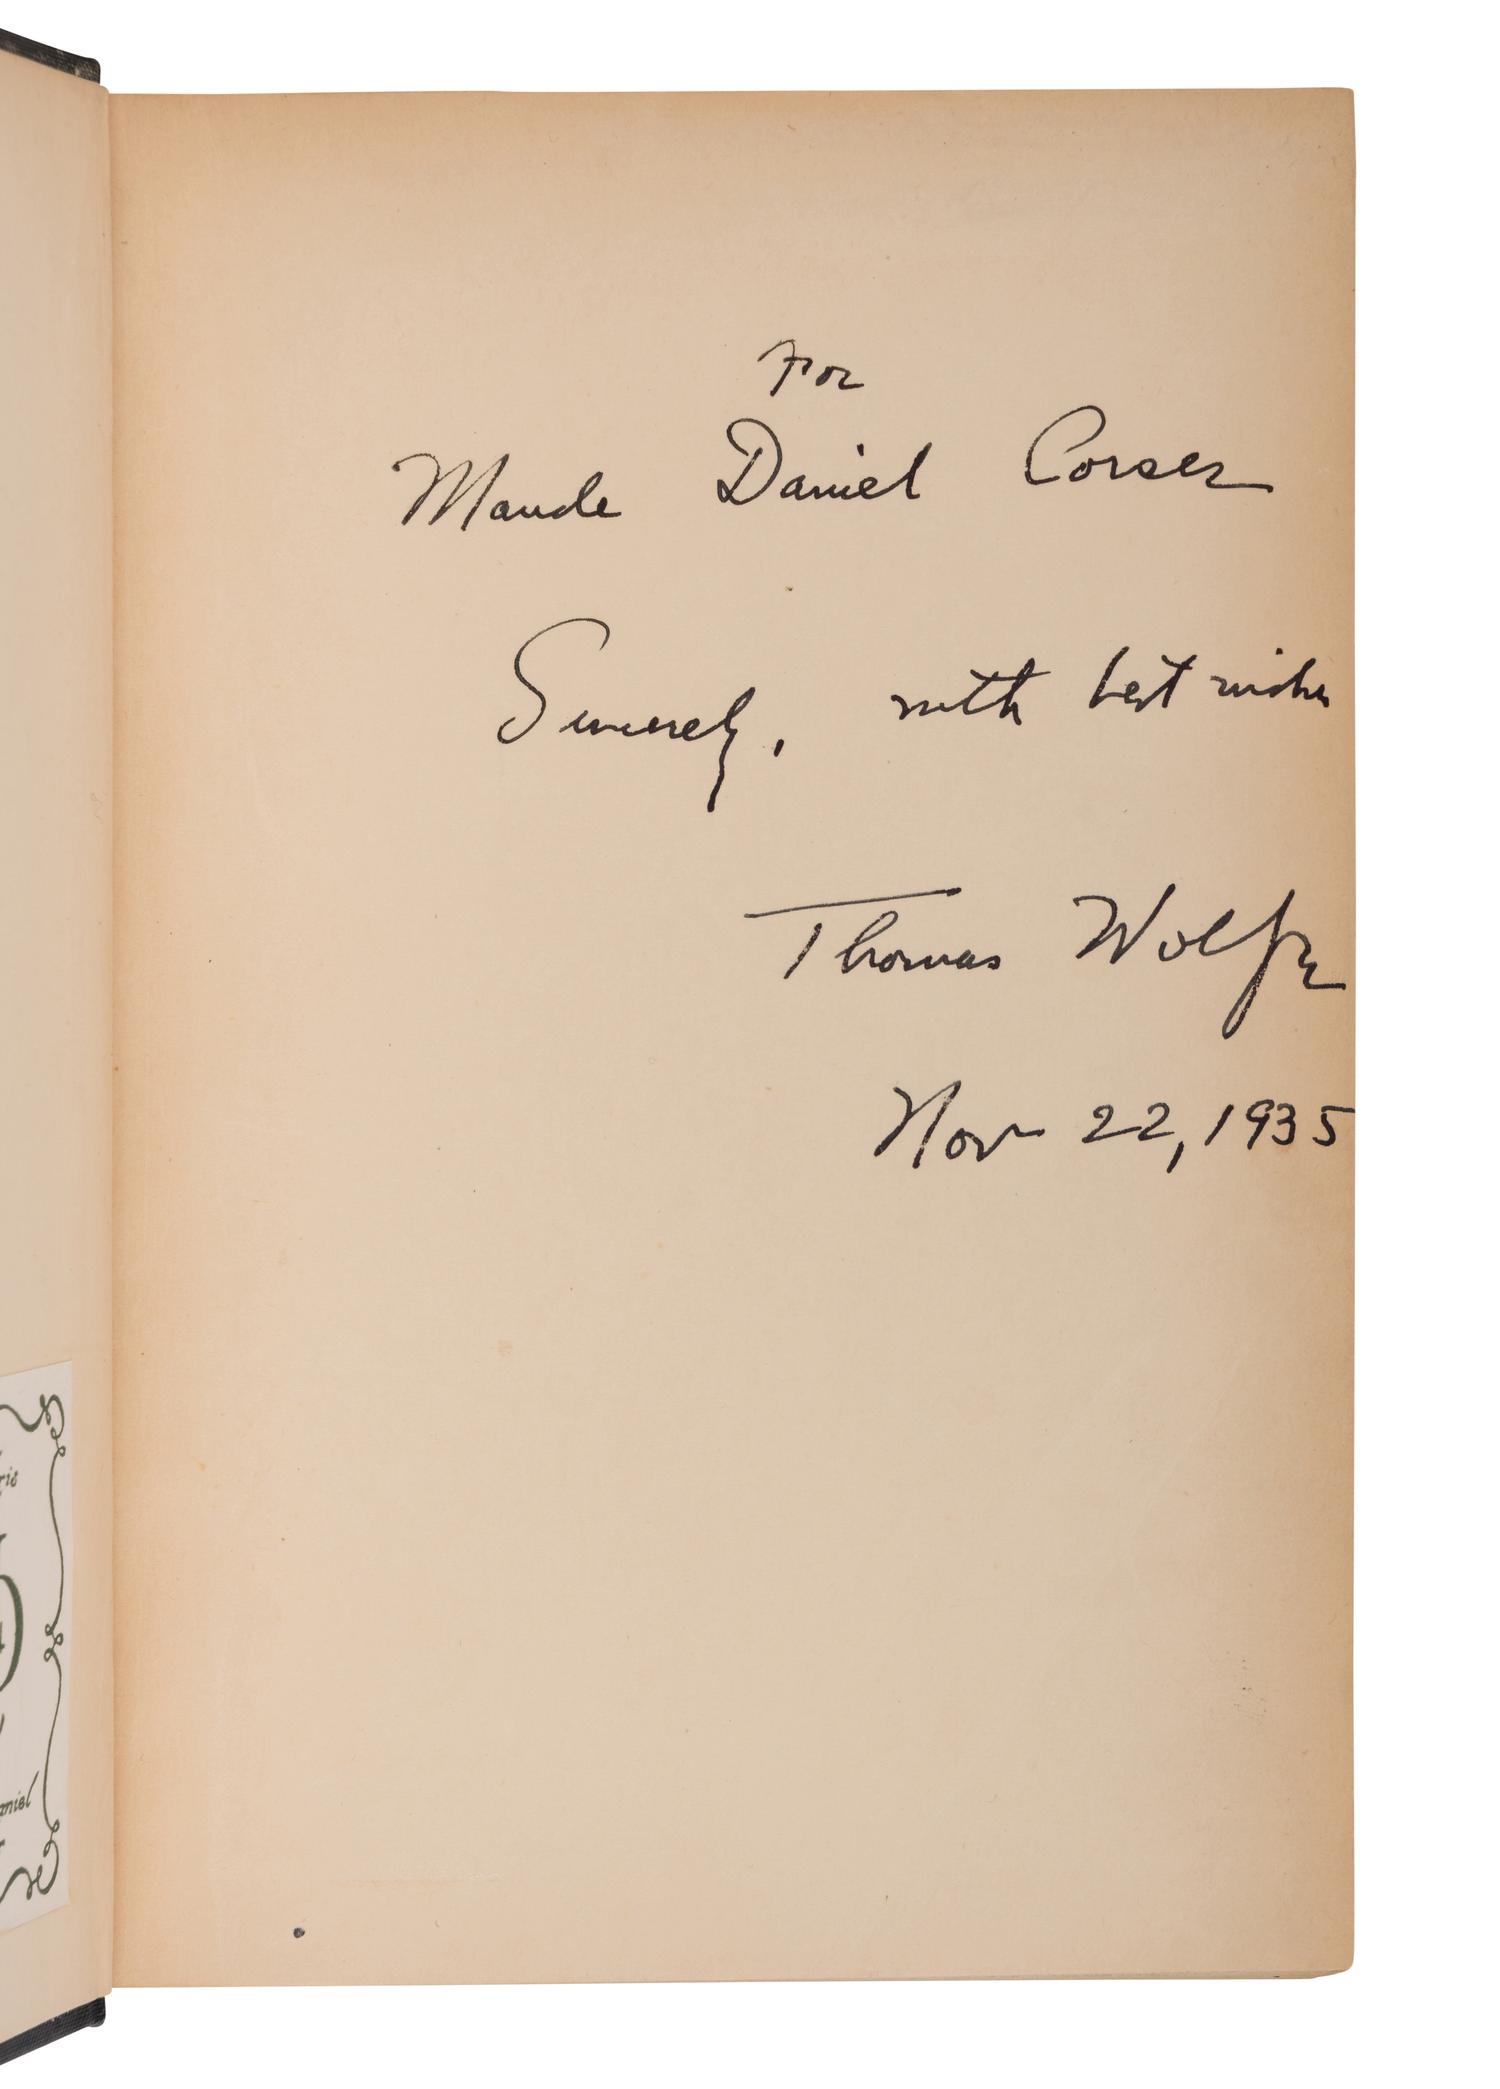 For
Maude Daniel Corser
Sincerely, with best wishes
Thomas Wolfe
Nov 22, 1935
ris
aniel